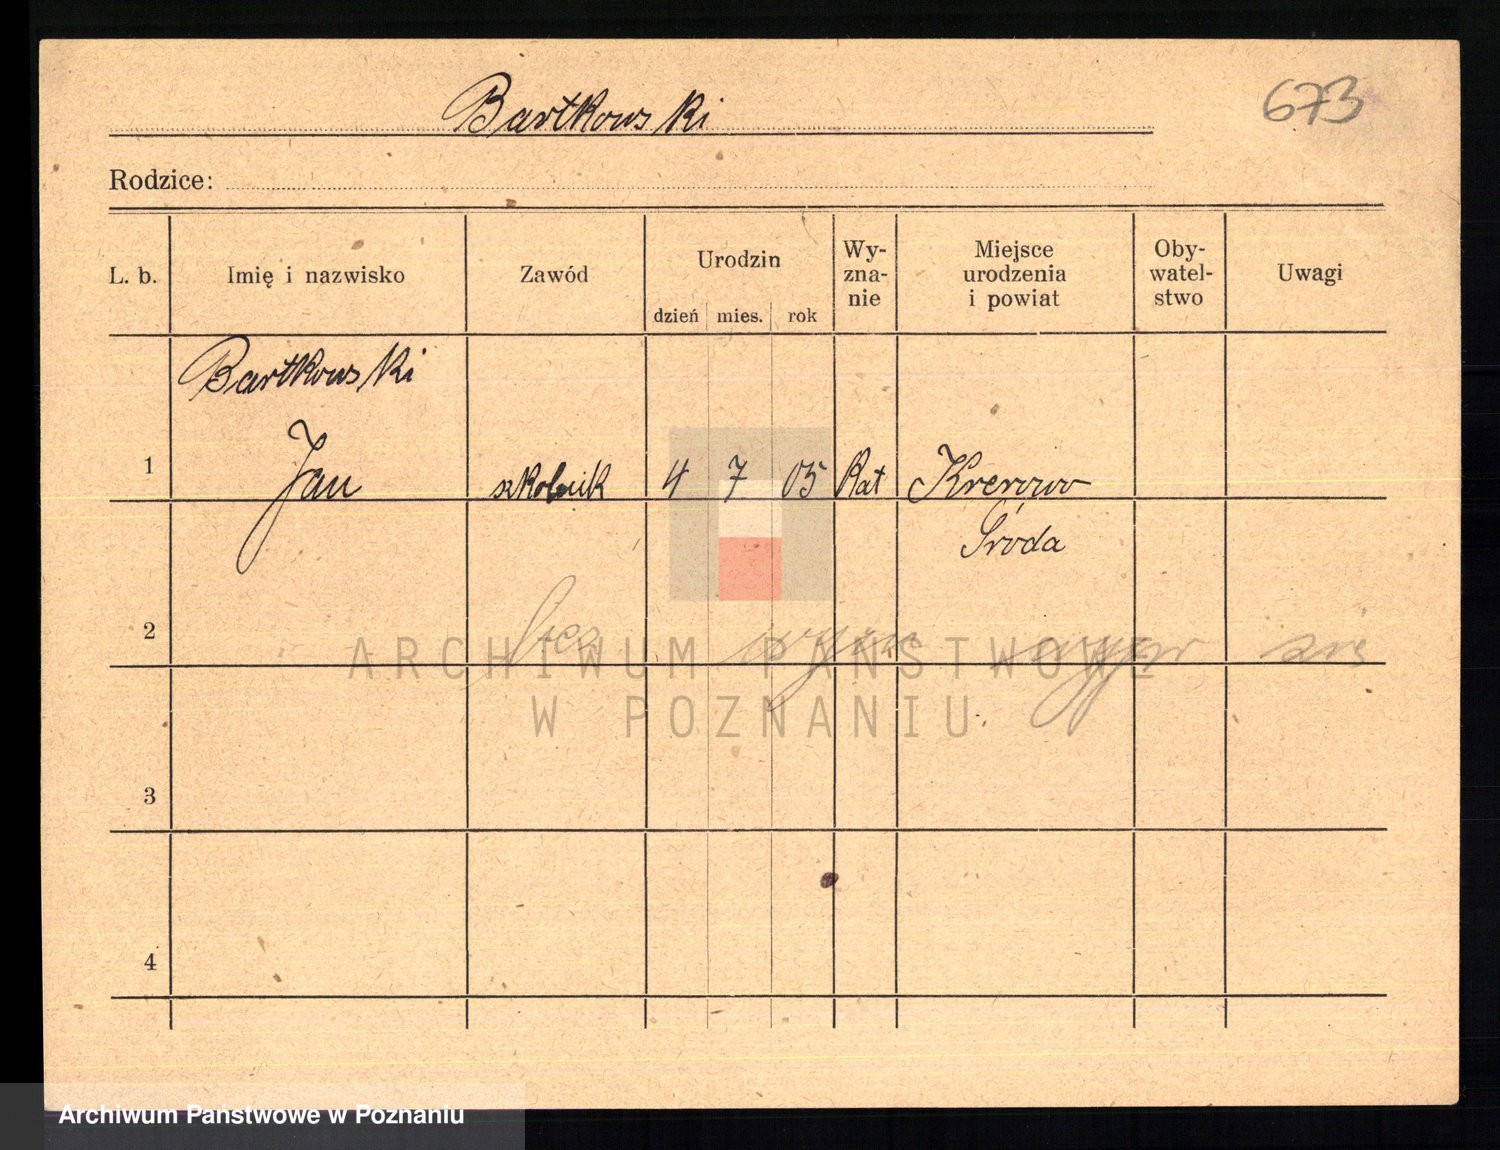 Bartkowski
673
Rodzice:
L. b. Imię i nazwisko Zawód Urodzin dzień mies. rok Wy-zna-nie Miejsce urodzenia i powiat Oby-watel-stwo Uwagi
Bartkowski
1 Jan szkolnik 4 7 05 Kat Krerowo
Środa
2 bez
3
4
ARCHIWUM PAŃSTWOWE
W POZNANIU
Archiwum Państwowe w Poznaniu